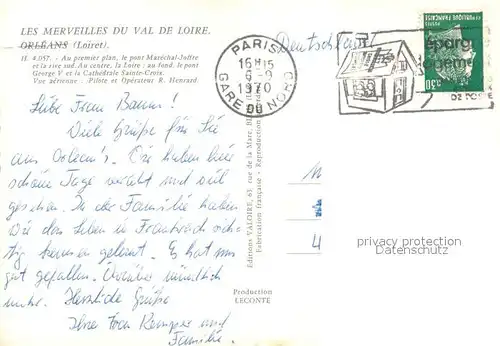 LES MERVEILLES DU VAL DE LOIRE.
ORLÉANS (Loiret).
H. 4.057. - Au premier plan, le pont Maréchal-Joffre
et la rive sud. Au centre, la Loire ; au fond, le pont
George V et la Cathédrale Sainte-Croix.
Vue aérienne - Pilote et Opérateur R. Henrard.
PARIS
16H15
6-9
1970
GARE DU NORD
Deutschland
RÉPUBLIQUE FRANÇAISE
POSTES
0,30
Liebe Frau Baums!
Viele Grüße für Sie
aus Orléans. Wir haben hier
schöne Tage verlebt und viel
gesehen. In der Familie haben
wir das Leben in Frankreich rich-
tig kennen gelernt. Es hat uns
gut gefallen. Darüber mündlich
mehr. Herzliche Grüße
Ihre Frau Kemper und
Familie.
Editions VALOIRE, 63, rue de la Mare,
Fabrication française - Reproduction
Production
LECONTE
privacy protection
Datenschutz